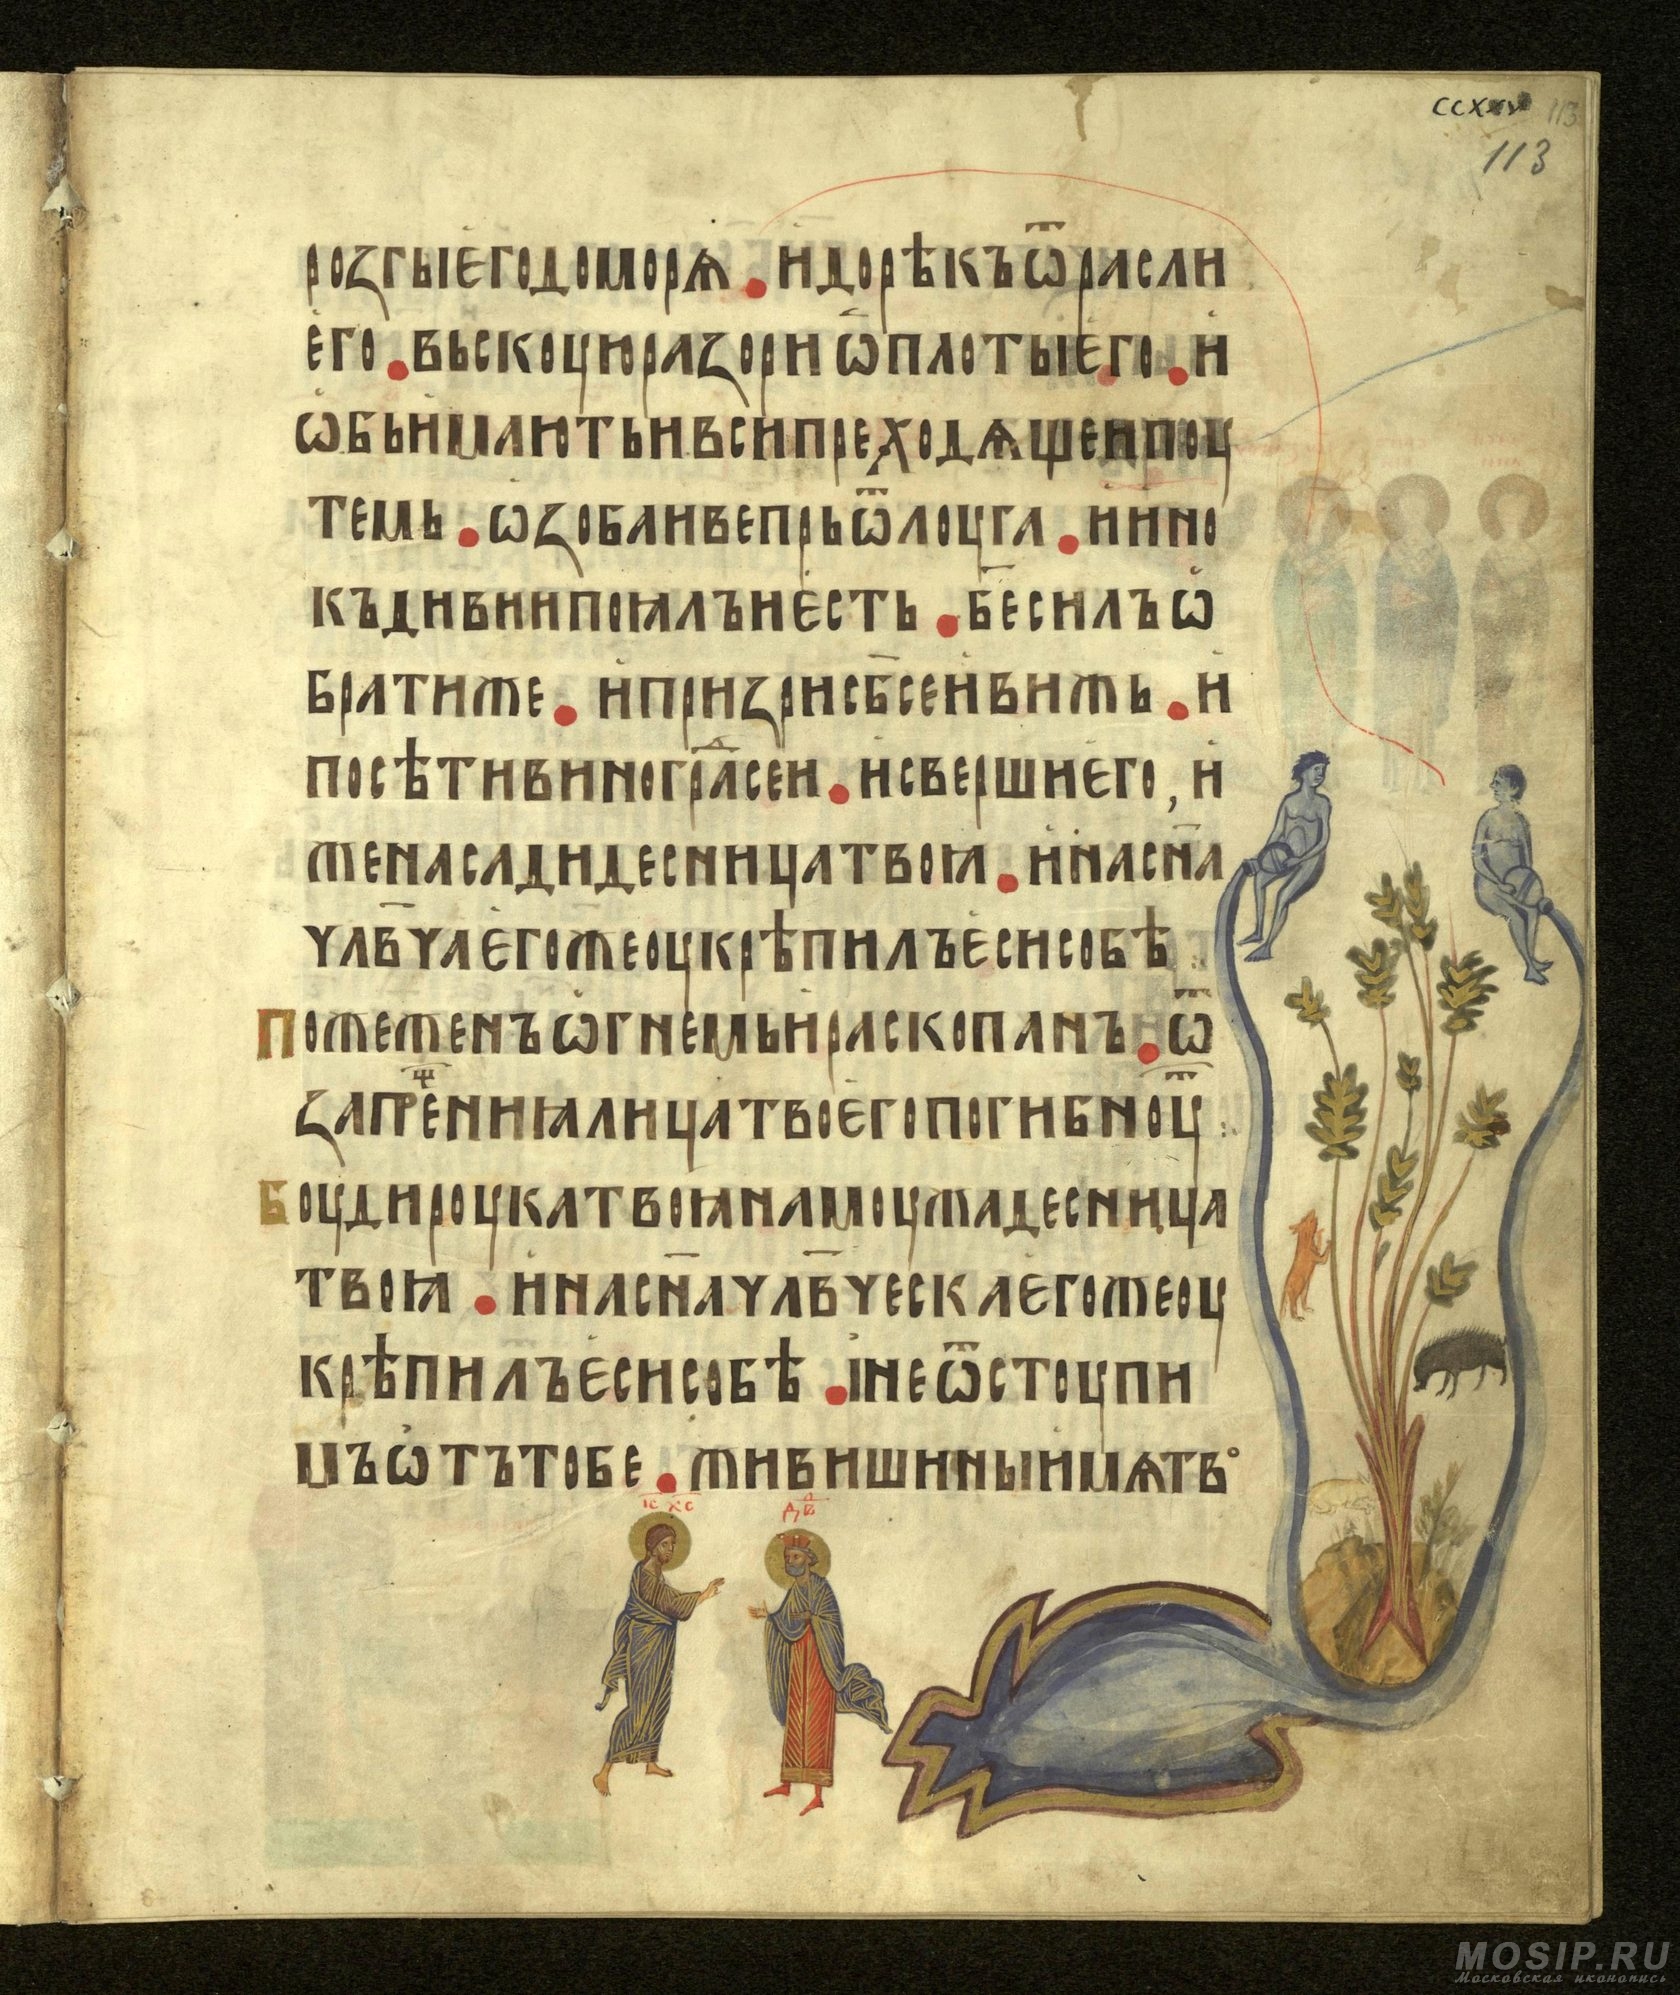 ссххv 113
113
розгыегодоморѧ . и дорѣкъѿрасли
его . въскоуюразориѡплотыего . и
ѡбьимлютьивсипреходѧщеипоу
темь . ѡзобаивепрьѿлоуга . иино
къдивиипоꙗлъиесть . б҃есилъѡ
братиже . ипризрисб҃сеивижь . и
посѣтивиногра҃ сеи . исвершиего , и
женасадидесницатвоꙗ . инасн҃а
чл҃вчаегожеоукрѣпилъесисобѣ
Пожеженъѡгнемьираскопанъ . ѿ
запрⷳ҇ениꙗлицатвоегопогибноу
Боудироукатвоꙗнамоужадесница
твоꙗ . инасн҃ачл҃вческаегожеоу
крѣпилъесисобѣ . інеѿстоупи
мъѡтътобе . живишиныимѧтв
ІС ХС
Дв҃
MOSIP.RU
Московская иконопись